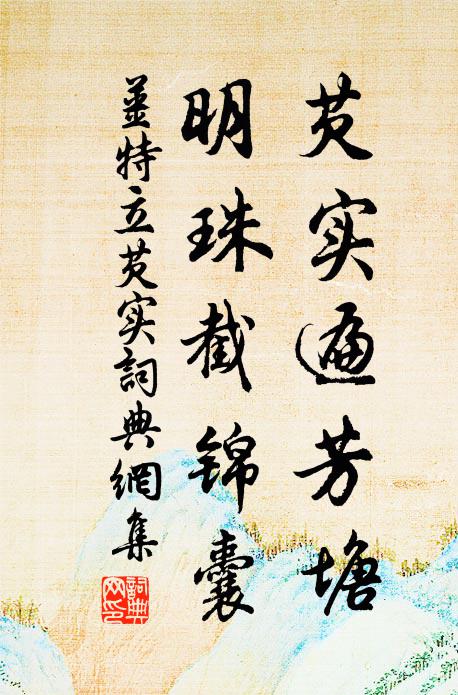 芡实遍芳塘
明珠截锦囊
姜特立芡实詞典網集
詞典